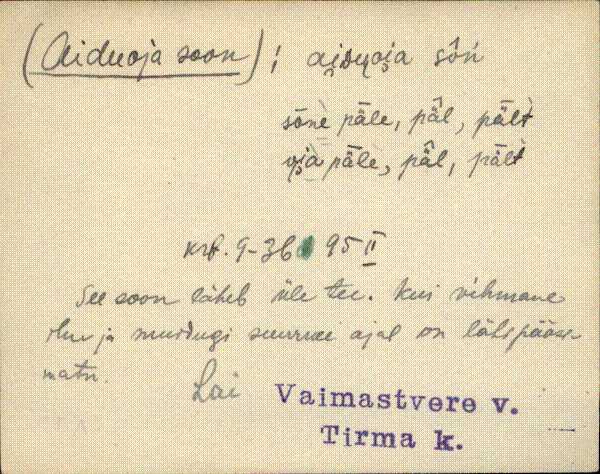 (Aiduoja soon); ai̯du̯oi̯a sôń
sōnè päle, pä̂l, pält̀
oi̯à pälè, pä̂l, pält̀
krt. 9-36 95 II
See soon läheb üle tee. Kui vihmane
ilm ja muidugi suurvee ajal on läbipääse
matu.
Lai
Vaimastvere v.
Tirma k.